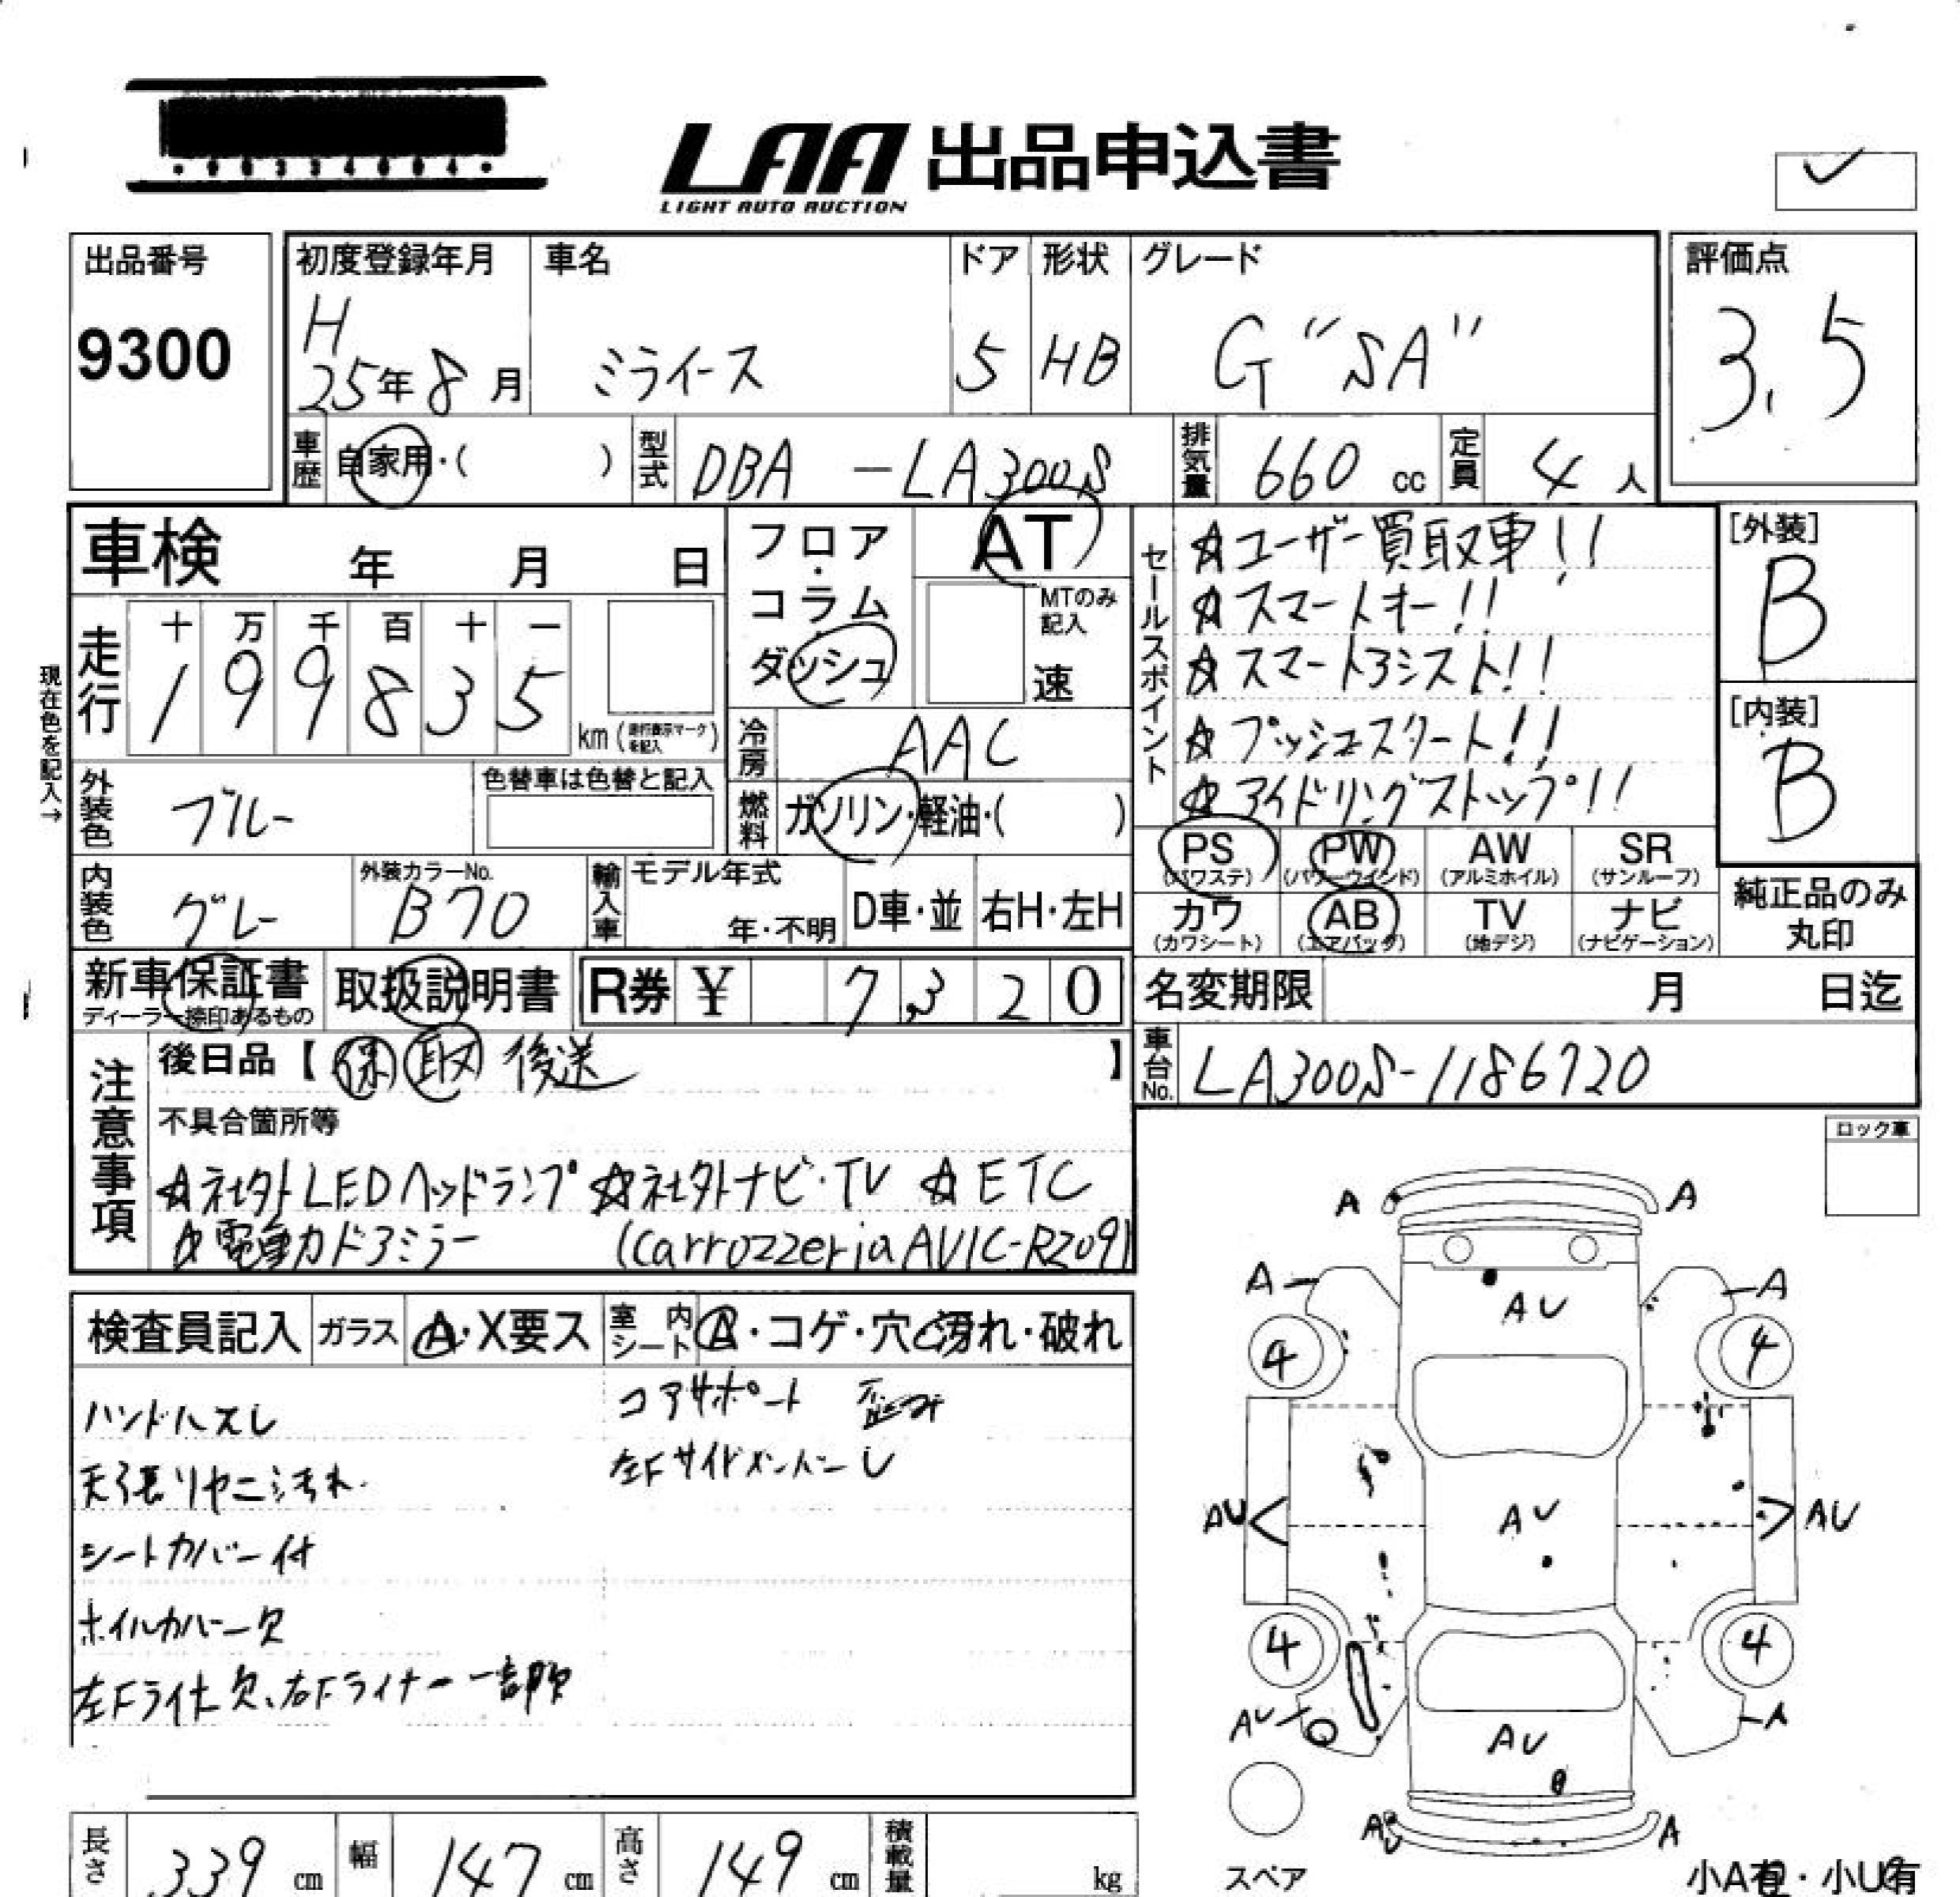 LAA 出品申込書
LIGHT AUTO AUCTION
出品番号
9300
初度登録年月
H
25年 8月
車名
ミライース
ドア
5
形状
HB
グレード
G "SA"
評価点
3.5
車歴 自家用・( )
型式 DBA -LA300S
排気量 660 cc
定員 4 人
車検 年 月 日
現在色を記入→
走行
十 万 千 百 十 一
1 9 9 8 3 5
km(走行表示マークを記入)
フロア・コラム
ダッシュ
AT
MTのみ記入
速
冷房 AAC
燃料 ガソリン・軽油・( )
外装色 ブルー
色替車は色替と記入
内装色 グレー
外装カラーNo.
B70
輸入車 モデル年式
年・不明
D車・並
右H・左H
セールスポイント
☆ユーザー買取車!!
☆スマートキー!!
☆スマートアシスト!!
☆プッシュスタート!!
☆アイドリングストップ!!
[外装]
B
[内装]
B
PS
(パワステ)
PW
(パワーウインド)
AW
(アルミホイル)
SR
(サンルーフ)
カワ
(カワシート)
AB
(エアバッグ)
TV
(地デジ)
ナビ
(ナビゲーション)
純正品のみ
丸印
新車保証書
ディーラー捺印あるもの
取扱説明書
R券 ¥ 7,320
名変期限 月 日迄
車台No. LA300S-1186720
注意事項
後日品【 保 取 後送 】
不具合箇所等
☆社外LEDヘッドランプ ☆社外ナビ・TV ☆ETC
☆電動カドアミラー (carrozzeria AVIC-RZ09)
ロック車
検査員記入
ガラス A・X要ス
室内シート A・コゲ・穴・汚れ・破れ
ハンドルスレ
天張りヤニ汚れ
シートカバー付
ホイルカバー欠
左Fライナー欠、右Fライナー一部欠
コアサポート 歪み
左Fサイドメンバー U
A A
A A
AU
4 4
AU AU AU
4 4
AU A
AU
AU A
スペア
小A有・小U有
長さ 339 cm
幅 147 cm
高さ 149 cm
積載量 kg